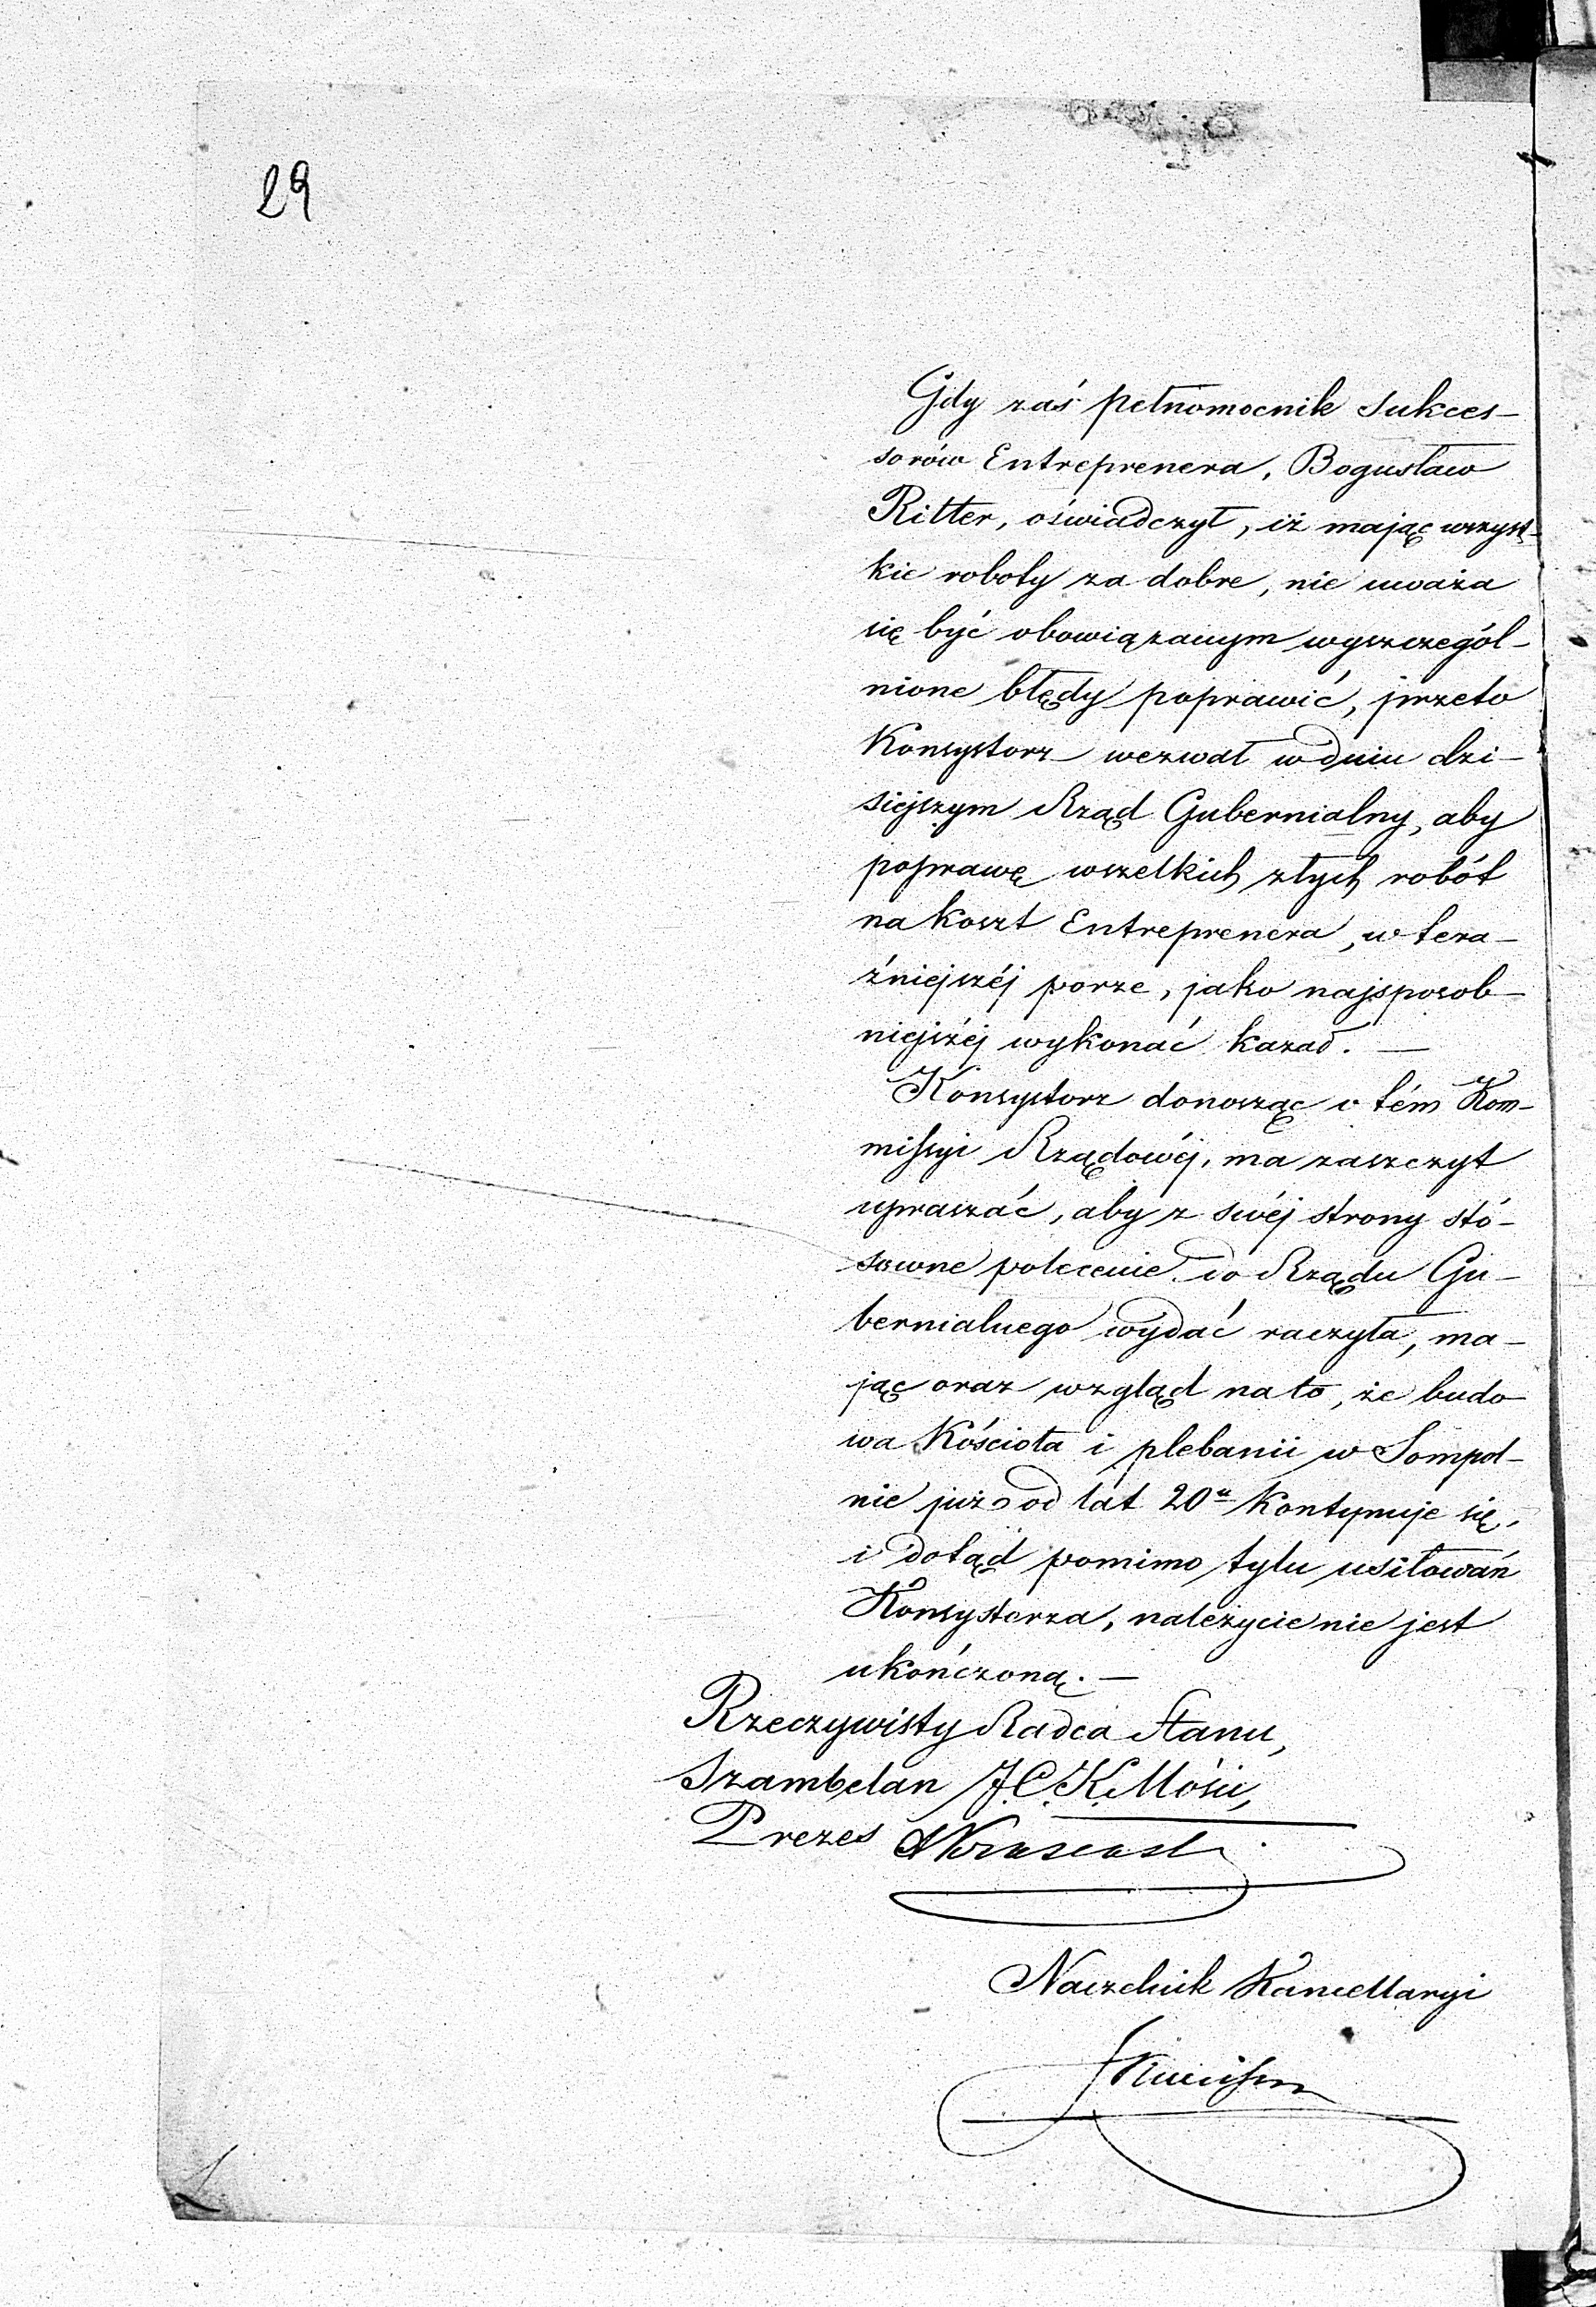 29
Gdy zaś pełnomocnik Sukces-
sorów Entreprenera, Bogusław
Ritter, oświadczył, iż mając wszyst-
kie roboty za dobre, nie uważa
się być obowiązanym wyszczegól-
nione błędy poprawić, przeto
Konsystorz wezwał w dniu dzi-
siejszym Rząd Gubernialny, aby
poprawę wszelkich złych robót
na koszt Entreprenera, w tera-
źniejszéj porze, jako najsposob-
niejszéj wykonać kazał. —
Konsystorz donosząc o tém Kom-
missyi Rządowéj, ma zaszczyt
upraszać, aby z swéj strony stó-
sowne polecenie do Rządu Gu-
bernialnego wydać raczyła, ma-
jąc oraz wzgląd na to, że budo-
wa Kościoła i plebanii w Sompol-
nie już od lat 20u kontynuje się,
i dotąd pomimo tylu usiłowań
Konsystorza, należycie nie jest
ukończoną. —
Rzeczywisty Radca Stanu,
Szambelan J.C.K. Mości,
Prezes
Naczelnik Kancellaryi